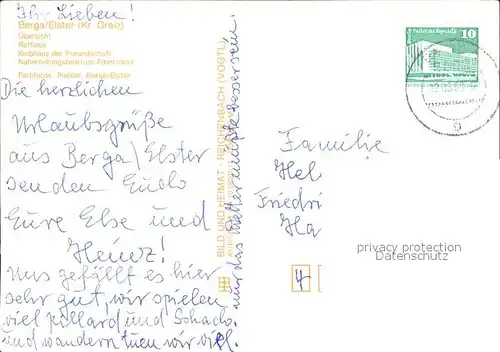 Ihr Lieben!
Berga/Elster (Kr. Greiz)
Übersicht
Rathaus
Klubhaus der Freundschaft
Naherholungszentrum Albersdorf
Farbfotos
Berga/Elster
Die herzlichen
Urlaubsgrüße
aus Berga/Elster
senden Euch
Eure Else und
Heinz!
Uns gefällt es hier
sehr gut, wir spielen
viel Billard und Schach,
und wandern tuen wir viel.
nur das Wetter müßte besser sein.
BILD UND HEIMAT · REICHENBACH (VOGTL)
Palast der Republik
10
Familie
Hel
Friedri
Ha
4
privacy protection
Datenschutz